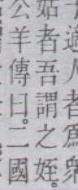 子適人者爲衆
姑者吾謂之姪。
公羊傳曰。二國